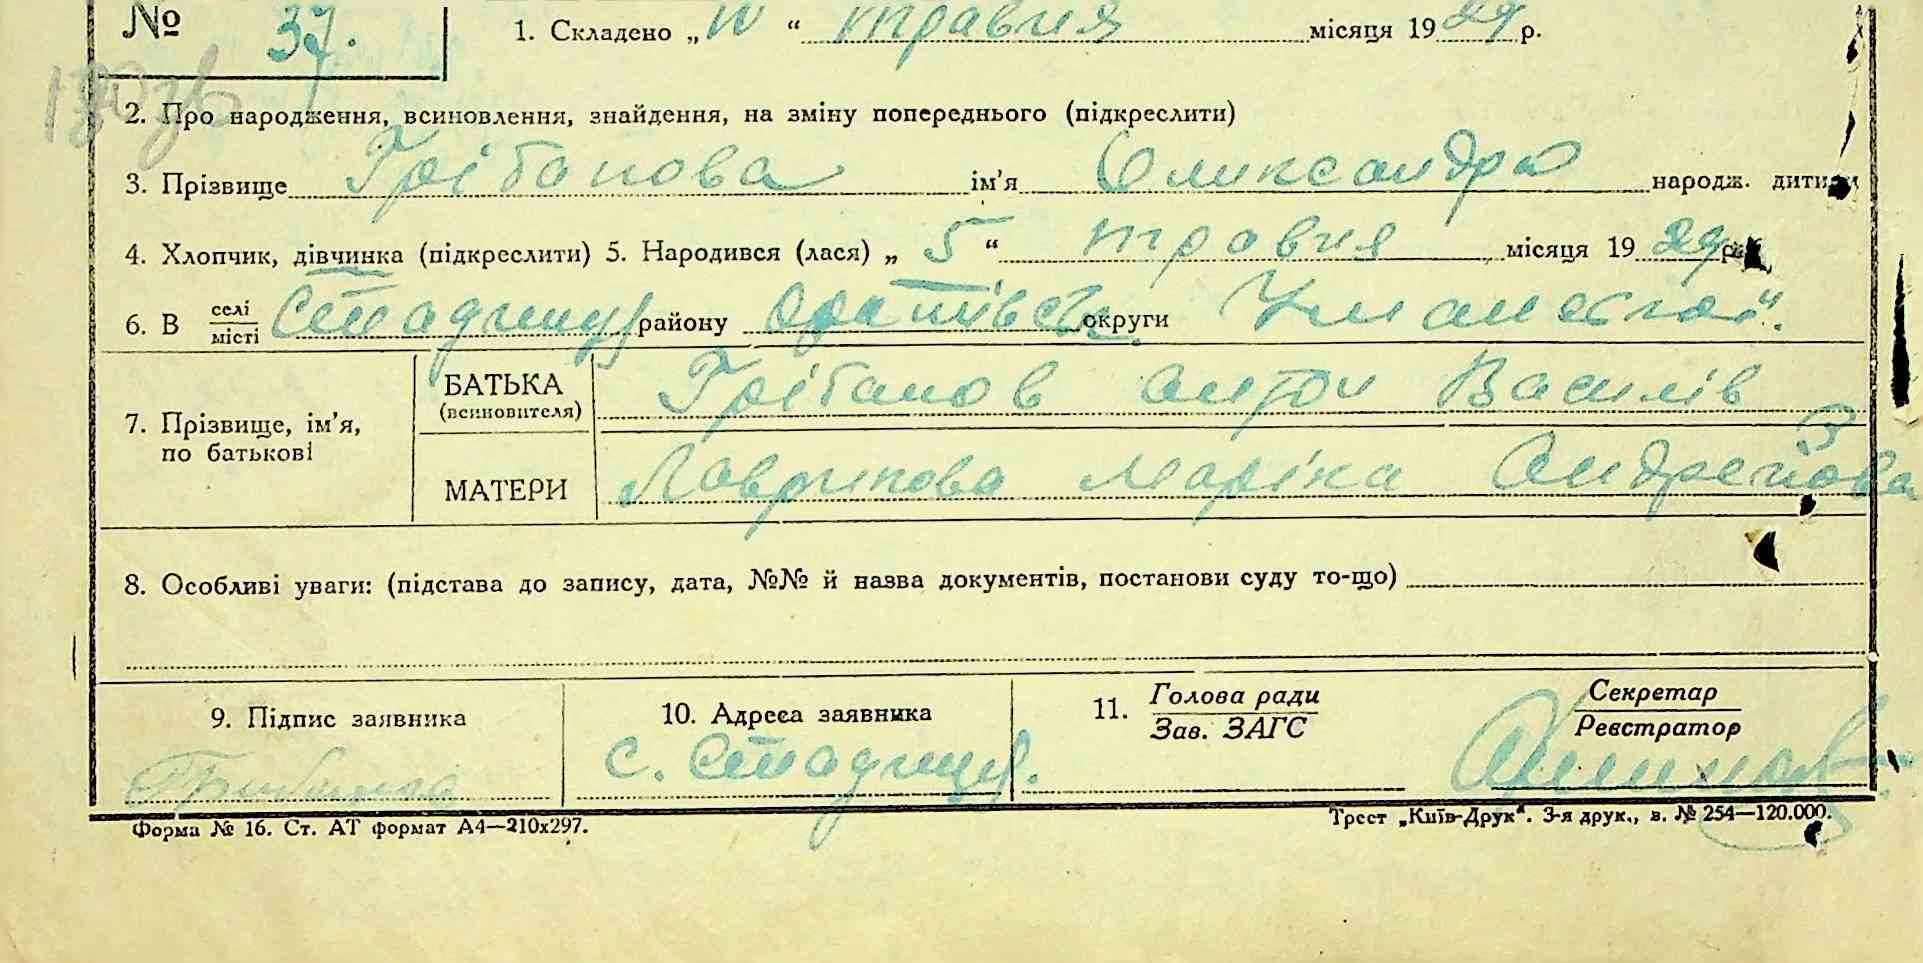 № 37. 1. Складено „10“ травня місяця 1929 р.
2. Про народження, всиновлення, знайдення, на зміну попереднього (підкреслити)
3. Прізвище Грібанова ім'я Олександра народж. дитини
4. Хлопчик, дівчинка (підкреслити) 5. Народився (лася) „5“ травня місяця 1929 р.
6. В селі/місті Стадниця району Оратівськ. округи Уманської.
7. Прізвище, ім'я, по батькові
БАТЬКА (всиновителя) Грібанов Антон Василів
МАТЕРИ Лавринова Маріка Андрейова
8. Особливі уваги: (підстава до запису, дата, №№ й назва документів, постанови суду то-що)
9. Підпис заявника 10. Адреса заявника 11. Голова ради/Зав. ЗАГС Секретар/Реєстратор
с. Стадниця.
Форма № 16. Ст. АТ формат А4—210х297. Трест „Київ-Друк“. 3-я друк., в. № 254—120.000.